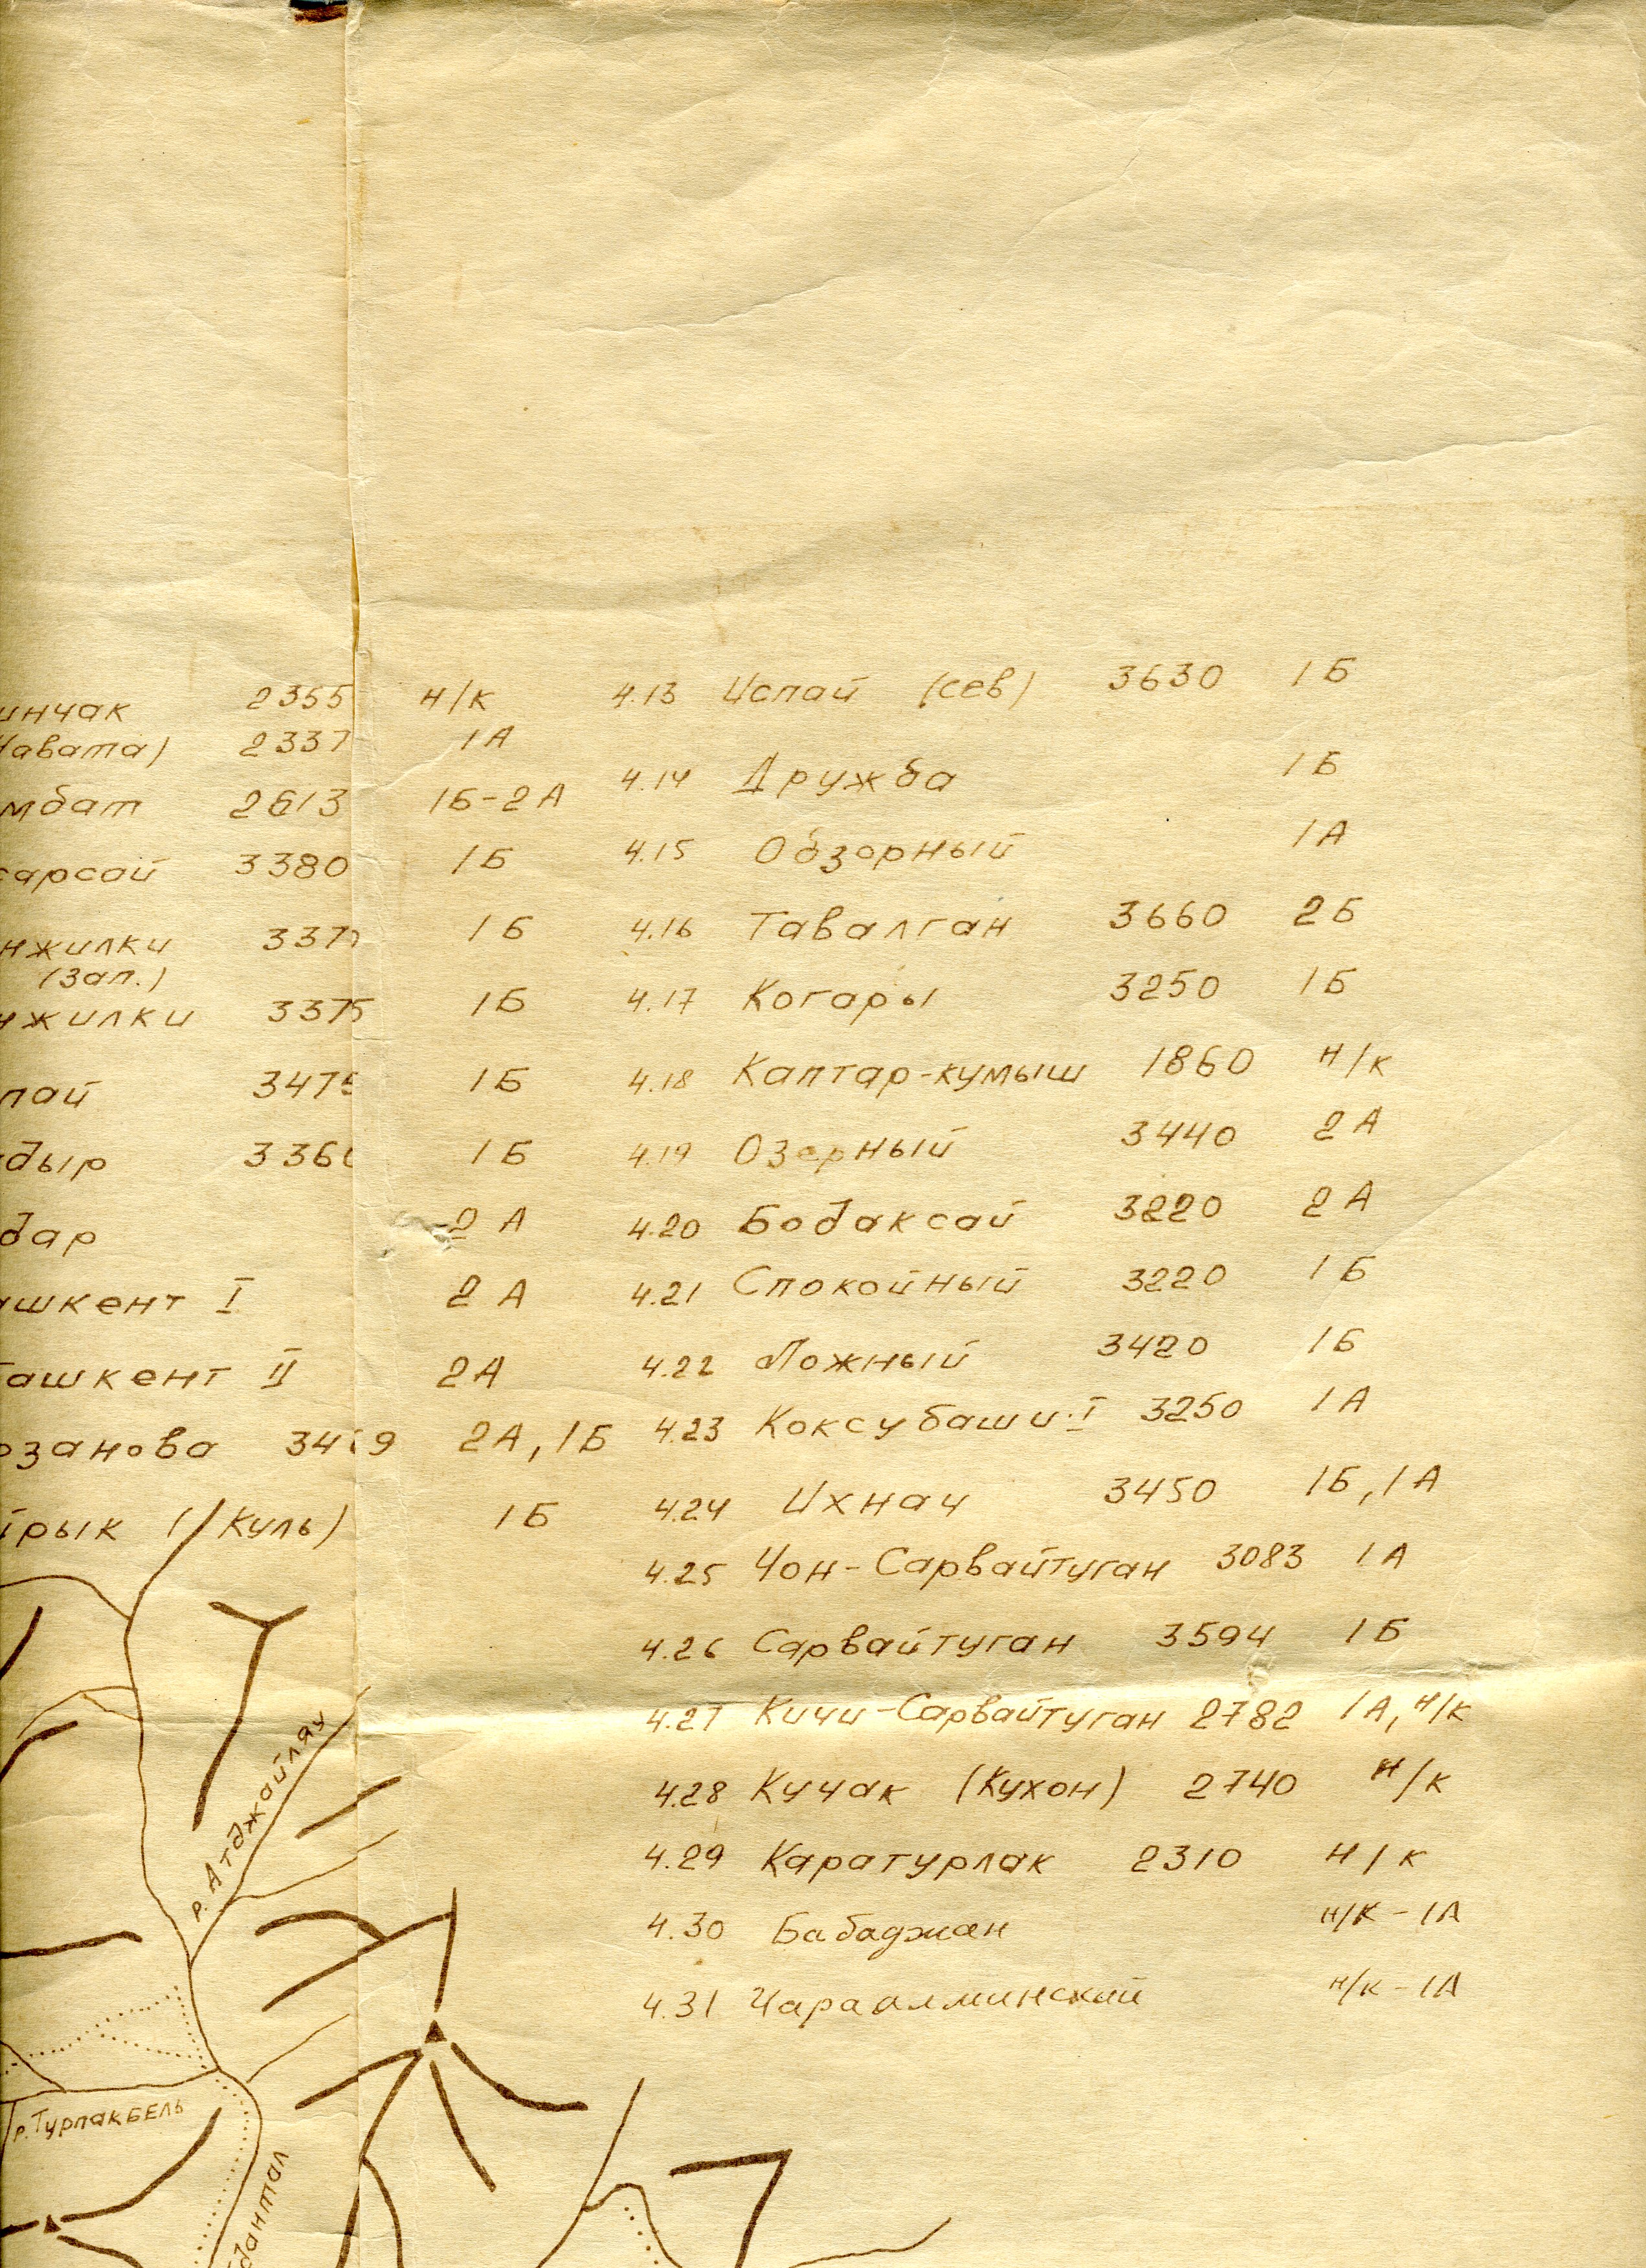 инчак 2355 н/к
Чавата) 2337 1А
мбат 2613 1Б-2А
сарсай 3380 1Б
нжилки 337 1Б
(зап.)
нжилки 3375 1Б
пай 3475 1Б
дыр 3360 1Б
дар 2А
ашкент I 2А
Ташкент II 2А
озанова 34 9 2А, 1Б
йрык ( Куль) 1Б
4.13 Испай (сев) 3630 1Б
4.14 Дружба 1Б
4.15 Обзорный 1А
4.16 Тавалган 3660 2Б
4.17 Когары 3250 1Б
4.18 Каптар-кумыш 1860 н/к
4.19 Озерный 3440 2А
4.20 Бодаксай 3220 2А
4.21 Спокойный 3220 1Б
4.22 Ложный 3420 1Б
4.23 Коксубаши I 3250 1А
4.24 Ихнач 3450 1Б, 1А
4.25 Чон-Сарвайтуган 3083 1А
4.26 Сарвайтуган 3594 1Б
4.27 Кичи-Сарвайтуган 2782 1А, н/к
4.28 Кучак (Кухон) 2740 н/к
4.29 Каратурлак 2310 н/к
4.30 Бабаджан н/к - 1А
4.31 Чараалминский н/к - 1А
р. Атджайляу
р. Турпакбель
дантал